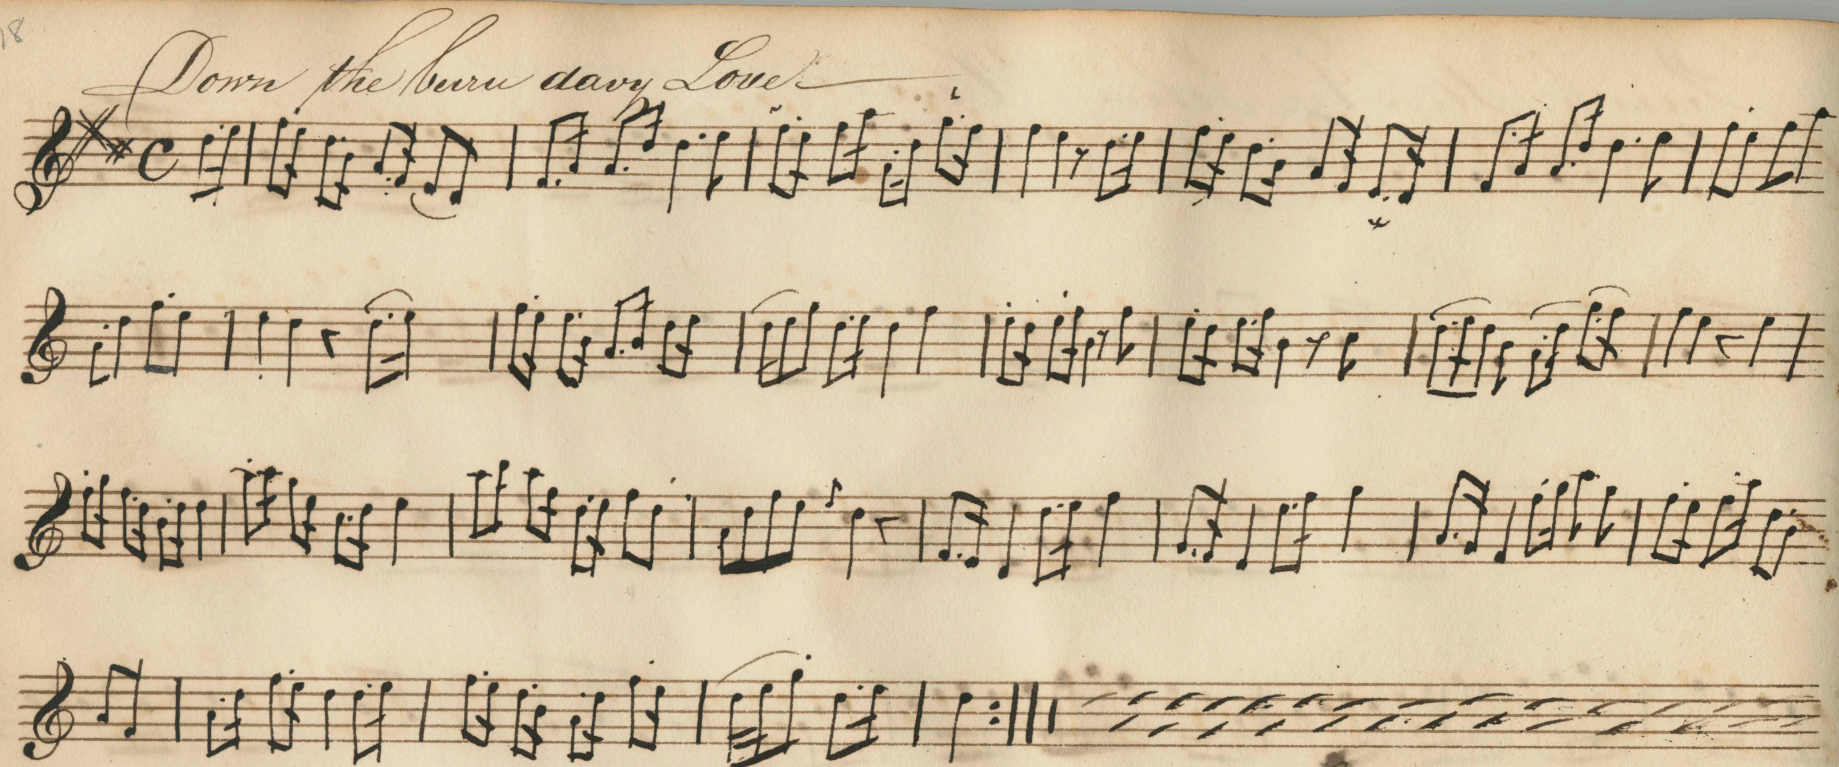 18
Down the burn davy Love